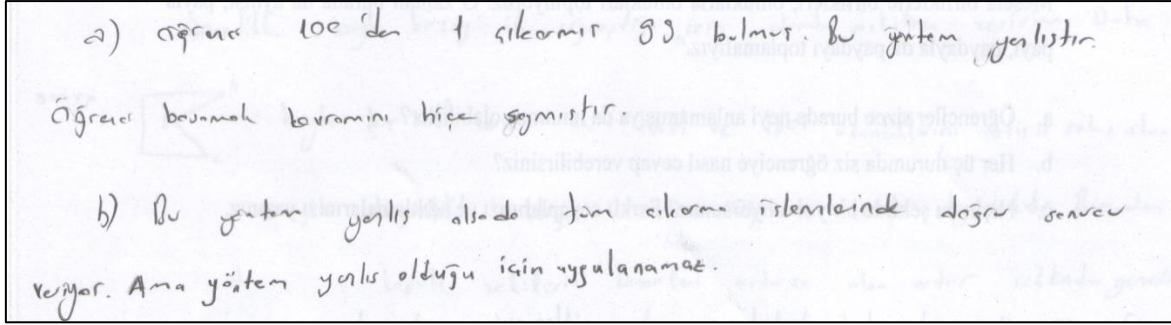 a) Öğrenci 100'den 1 çıkarmış 99 bulmuş. Bu yöntem yanlıştır.
Öğrenci basamak kavramını hiçe saymıştır.
b) Bu yöntem yanlış olsa da aynı çıkarma işlemlerinde doğru sonucu
veriyor. Ama yöntem yanlış olduğu için uygulanamaz.